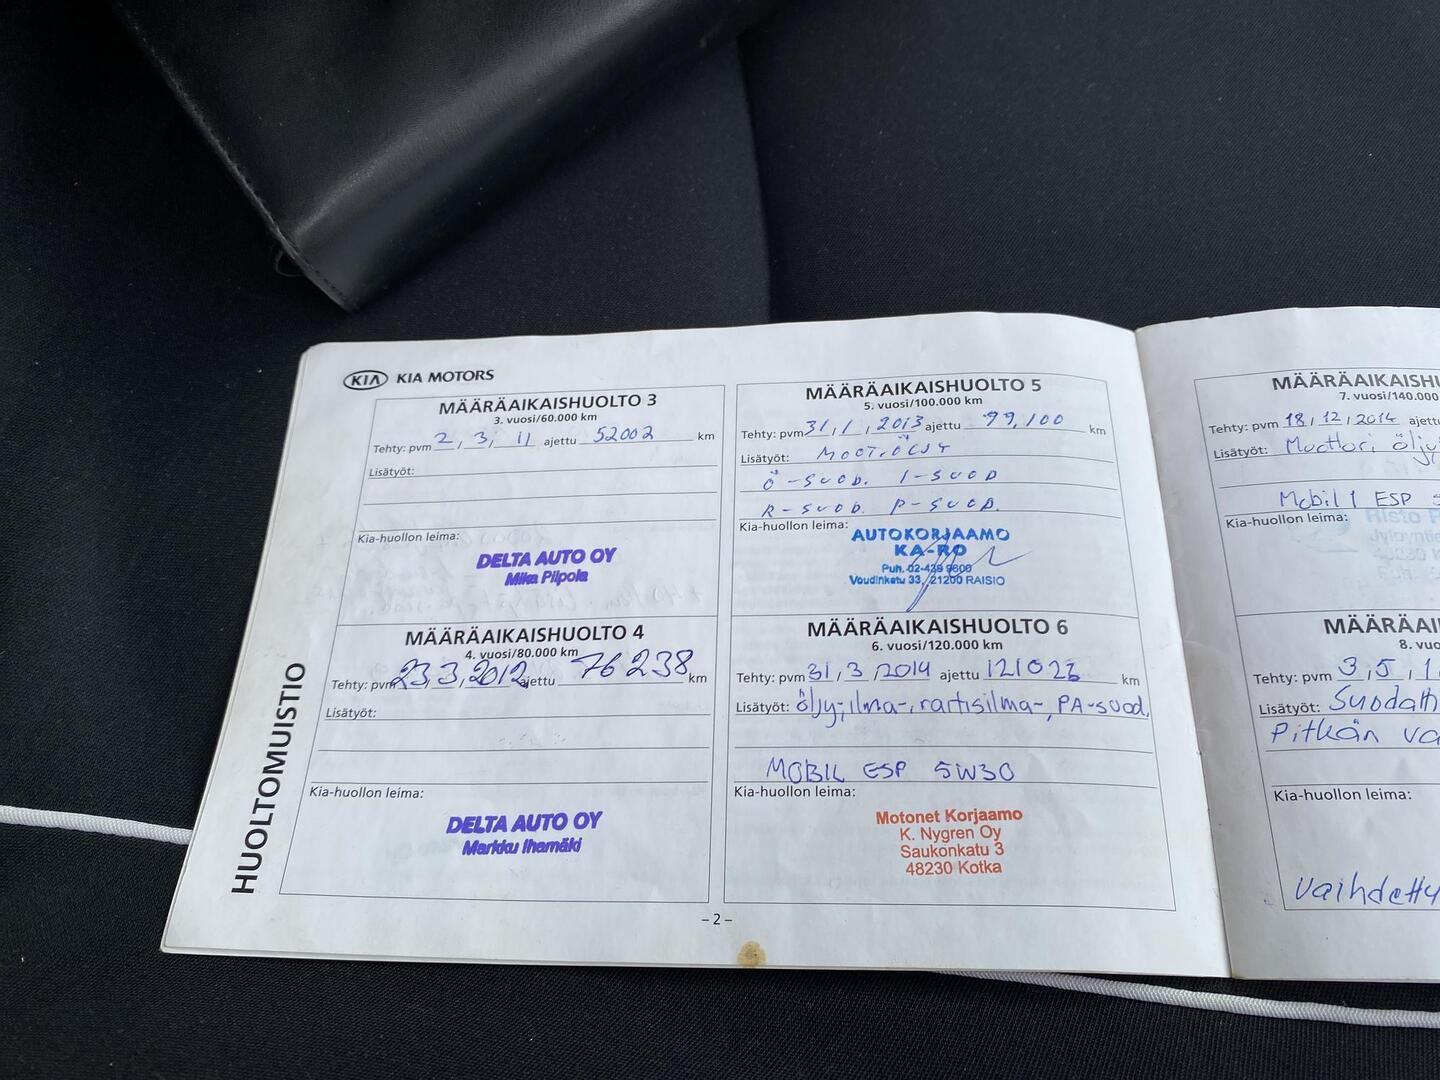 KIA KIA MOTORS
HUOLTOMUISTIO
MÄÄRÄAIKAISHUOLTO 3
3. vuosi/60.000 km
Tehty: pvm 2, 3, 11 ajettu 52002 km
Lisätyöt:
Kia-huollon leima:
DELTA AUTO OY
Mika Piipola
MÄÄRÄAIKAISHUOLTO 4
4. vuosi/80.000 km
Tehty: pvm 23, 3, 2012 ajettu 76 238 km
Lisätyöt:
Kia-huollon leima:
DELTA AUTO OY
Markku Ihamäki
MÄÄRÄAIKAISHUOLTO 5
5. vuosi/100.000 km
Tehty: pvm 31, 1, 2013 ajettu 99,100 km
Lisätyöt: MOOT.ÖLJY
Ö-SUOD. I-SUOD
R-SUOD. P-SUOD.
Kia-huollon leima:
AUTOKORJAAMO
KA-RO
Puh. 02-439 9600
Voudinkatu 33, 21200 RAISIO
MÄÄRÄAIKAISHUOLTO 6
6. vuosi/120.000 km
Tehty: pvm 31, 3, 2014 ajettu 121023 km
Lisätyöt: öljy-, ilma-, raitisilma-, PA-suod.
MOBIL ESP 5W30
Kia-huollon leima:
Motonet Korjaamo
K. Nygren Oy
Saukonkatu 3
48230 Kotka
– 2 –
MÄÄRÄAIKAISHU
7. vuosi/140.000
Tehty: pvm 18, 12, 2014 ajettu
Lisätyöt: Moottori öljy
Mobil 1 ESP
Kia-huollon leima:
MÄÄRÄAI
8. vuo
Tehty: pvm 3, 5, 1
Lisätyöt: Suodath
Pitkän va
Kia-huollon leima:
vaihdetty